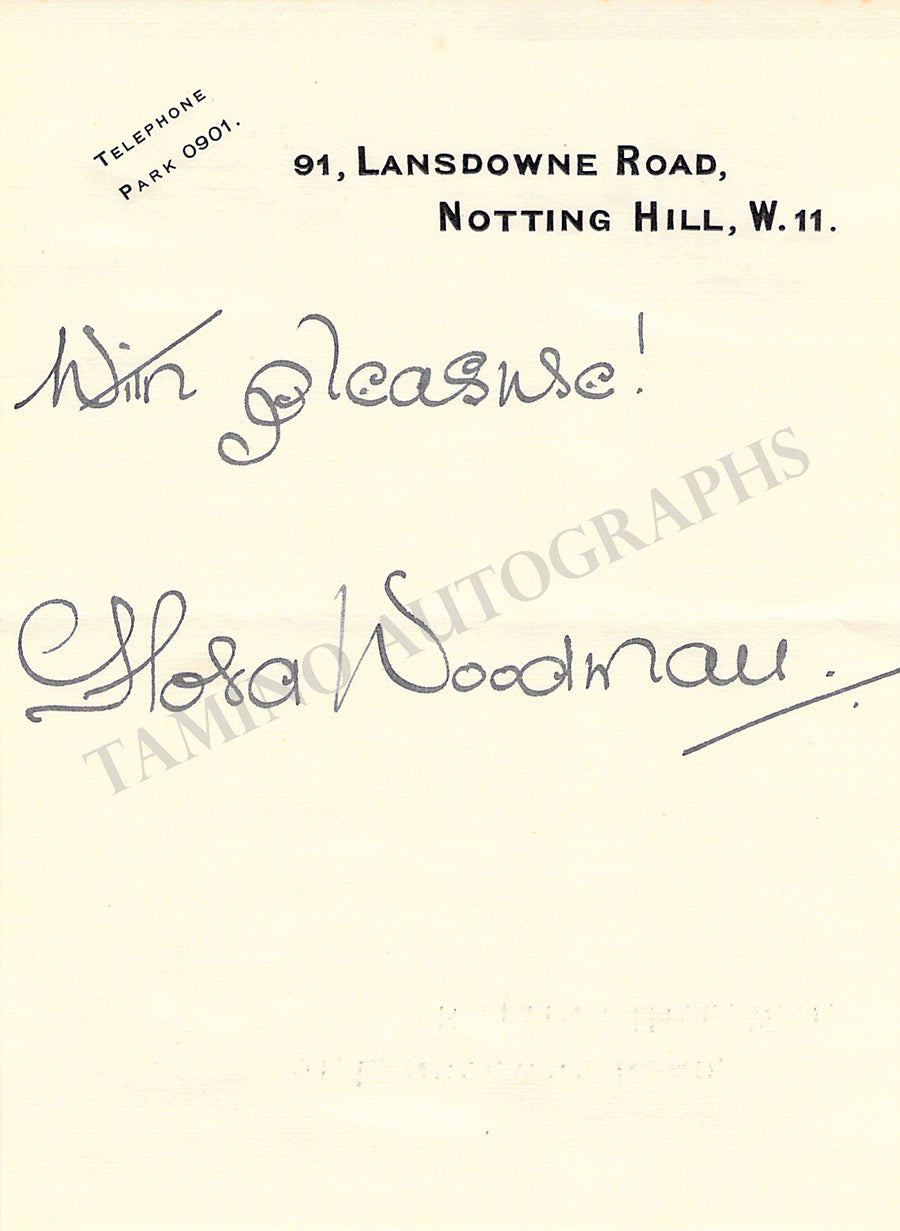 TELEPHONE
PARK 0901.
91, LANSDOWNE ROAD,
NOTTING HILL, W. 11.
With pleasure!
Flora Woodman.
TAMINO AUTOGRAPHS